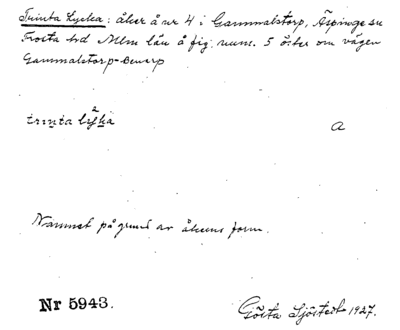 Trinta Lycka: åker å nr 4 i Gammalstorp, Äspinge sn
Frosta hd Mlm län å fig. num. 5 öster om vägen
Gammalstorp-
trinta lyka
A
Namnet på grund av åkerns form.
Nr 5943.
Gösta Sjöstedt 1927.